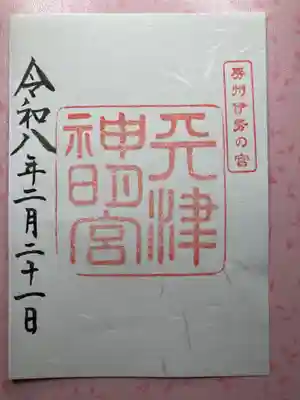 房州伊勢の宮
天津
神明宮
令和八年二月二十一日